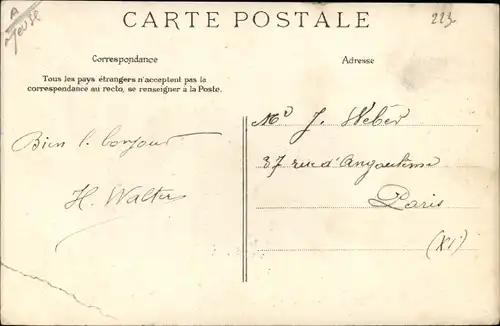 A
Meuse
CARTE POSTALE
223
Correspondance
Adresse
Tous les pays étrangers n'acceptent pas la
correspondance au recto, se renseigner à la Poste.
Bien l. bonjour
H. Walter
Mr J. Weber
37 rue d'Angoulême
Paris
(XI)